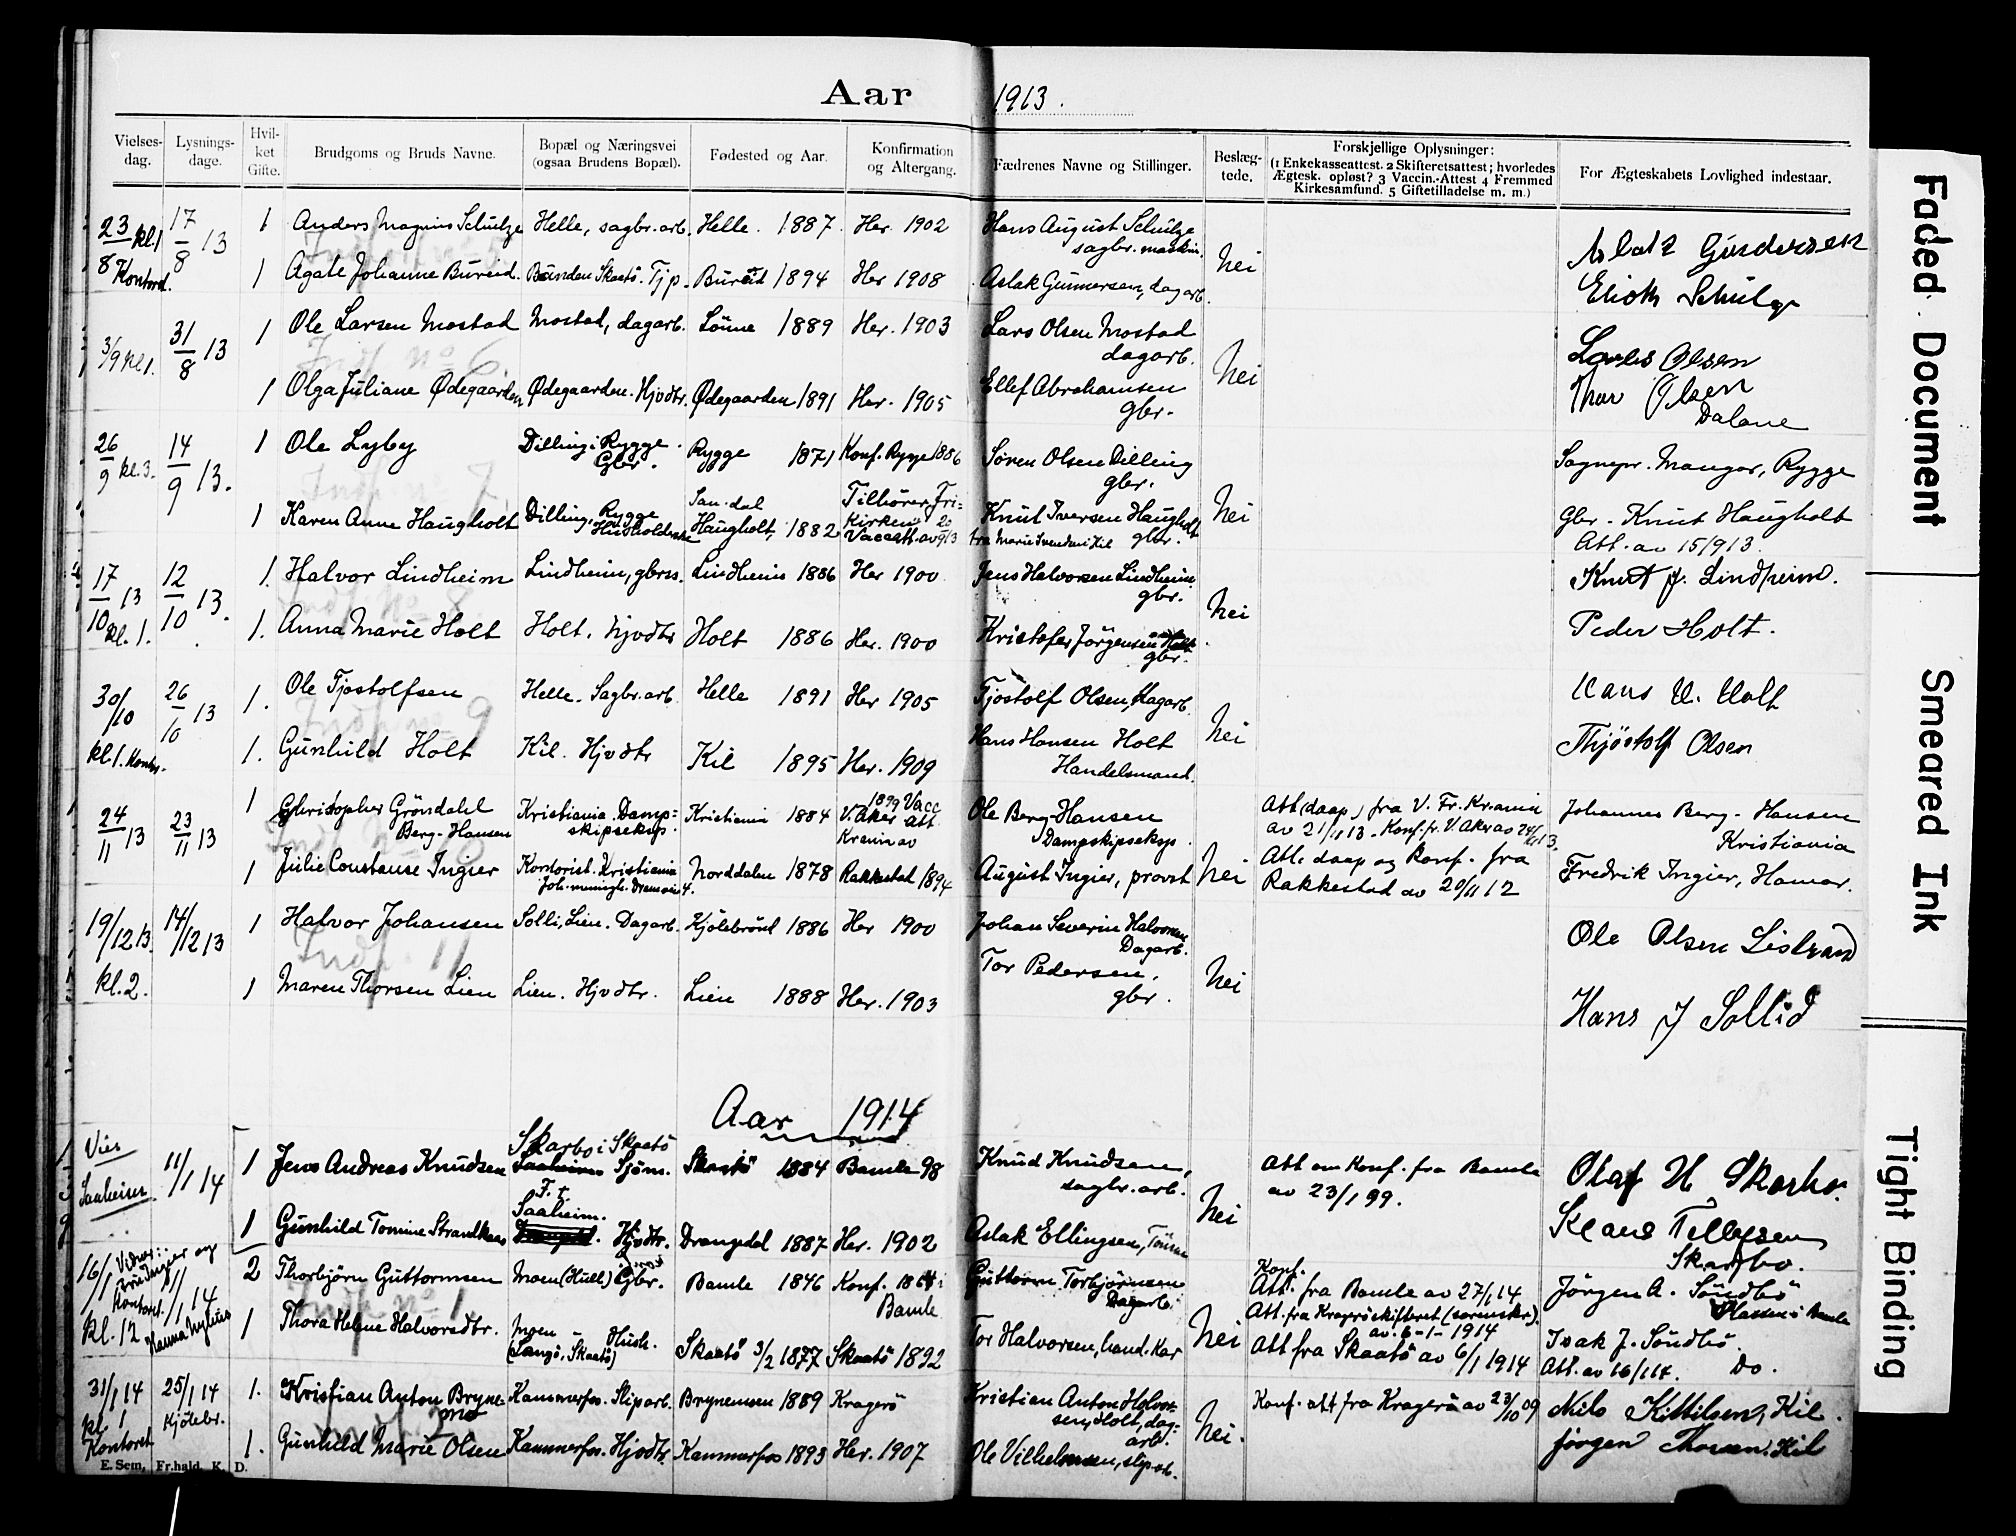 Aar 1913.
Vielses-dag. Lysnings-dage. Hvil-ket Gifte. Brudgoms og Bruds Navne. Bopæl og Næringsvei (ogsaa Brudens Bopæl). Fødested og Aar. Konfirmation og Altergang. Fædrenes Navne og Stillinger. Beslæg-tede. Forskjellige Oplysninger: (1 Enkekasseattest. 2 Skifteretsattest; hvorledes Ægtesk. opløst? 3 Vaccin.-Attest 4 Fremmed Kirkesamfund. 5 Giftetilladelse m. m.) For Ægteskabets Lovlighed indestaar.
23/8 kl. 1 Kontoret. 17/8 13 1 Anders Magnus Schultze Helle, sagbr. arb. Helle. 1887. Her. 1902 Hans August Schultze sagbr. maskin. Nei Aslak Gundersen
1 Agate Johanne Bureid. Skaatö. Tjp. Bureid 1894 Her 1908 Aslak Gunnersen, dagarb. Schulze
3/9 kl 1. 31/8 13 1 Ole Larsen Mostad Mostad, dagarb. Lönne 1889 Her. 1903 Lars Olsen Mostad dagarb. Nei Olsen
1 Olga Juliane Ødegaarden Ødegaarden. Hjvdtr. Ødegaarden 1891 Her. 1905 Ellef Abrahamsen gbr. Thor Olsen Dalane
26/9 kl. 3. 14/9 13. 1 Ole Lyby Dilling i Rygge. Gbr. Rygge 1871 Konf. Rygge 1886 Sören Olsen Dilling gbr. Nei Sognepr. Mangor, Rygge
1 Karen Anne Haugholt Dilling, Rygge Husholderske San.dal Haugholt, 1882 Tilhörer Frikirken Vaccatt. av 20/9 13 Knut Iversen Haugholt gbr. Gbr. Knut Haugholt Att. av 15/9 13.
17/10 13 kl. 1. 12/10 13. 1. Halvor Lindheim Lindheim, gbrs. Lindheim 1886 Her 1900 Jens Halvorsen Lindheim gbr. Nei Knut J. Lindheim.
1. Anna Marie Holt Holt. hjvdtr Holt 1886 Her. 1900 Kristofer Jörgensen Holt gbr. Peder Holt.
30/10 kl. 1. Kontor. 26/10 13 1. Ole Tjostolfsen Helle. Sagbr. arb. Helle 1891 Her 1905 Tjostolf Olsen, dagarb. Nei Hans H. Holt
1. Gunhild Holt Kil. Hjvdtr Kil 1895 Her. 1909 Hans Hansen Holt Handelsmand. Thjöstolf Olsen
24/11 13 23/11 13 1 Christopher Gröndahl Berg-Hansen Kristiania. Damp-skipseksp. Kristiania 1884 1899 V. Aker Vacc Att Krania av Ole Berg-Hansen Dampskipseksp. Nei Att (daap) fra V. Fr. Kr.ania av 21/11 13 - Konf. fr. V. Aker av 24/11 13. Johannes Berg-Hansen Kristiania
1 Julie Constanse Ingier Kontorist. Kristiania Norddalen 1878 Rakkestad 1894 August Ingier, provst Att. daap og Konf. fra Rakkestad av 20/11 12 Fredrik Ingier, Hamar.
19/12 13. kl. 2. 14/12 13 1 Halvor Johansen Solli, Lien. Dagarb. Kjölebrönd 1886 Her 1900 Johan Severin Halvorsen Dagarb. Nei Ole Olsen Listrand
1 Maren Thorsen Lien Lien. Hjvdtr. Lien 1888 Her. 1903 Tor Pedersen, gbr. Hans J Sollid
Aar 1914
Vies Saaheim. 11/1 14 1 Jens Andreas Knudsen Skarbo i Skaatö Sjöm. Skaatö 1884 Bamle 98 Knud Knudsen, sagbr. arb. Nei Att om Konf. fra Bamle av 23/1 99. Olaf H Skarbo.
1 Gunhild Tomine Strandkaas F. t. Saaheim. Hjvdtr. Drangedal 1887 Her. 1902 Aslak Ellingsen, Tömm Klaus Tellefsen Skarbo.
16/1 kl. 12 Kontoret. 11/1 14 2 Thorbjörn Guttormsen Moen (Hull) Gbr. Bamle 1846 Konf. 1864 i Bamle Guttorm Torbjörnsen Dagarb. Nei Konf. Att. fra Bamle av 27/1 14 Jörgen A. Sundbö Bamle
1 Thora Helene Halvorsdtr. Moen (Langö, Skaatö) Hush. Skaatö 3/2 1877 Skaatö 1892 Tor Halvorsen, hand. kar Att. fra Kragrö skifteret av 6-1-1914 Att fra Skaatö av 6/1 1914 Isak J. Sundbö. Att. av 16/1 14. Do.
31/1 14 kl. 1 Kontoret 25/1 14 Kjölebr. 1. Kristian Anton Bryne Kammerfos. Sliparb. Brynemoen 1889 Kragerö Kristian Anton Halvorsen, Holt, dagarb. Nei. Konf. att fra Kragerö av 23/10 09 Nils Kittilsen, Kil.
1. Gunhild Marie Olsen Kammerfos. Hjvdtr. Kammerfos 1893 Her. 1907 Ole Vilhelmsen, slip arb. Jörgen Thorsen. Kil
E. Sem, Fr.hald. K. D.
Faded Document
Smeared Ink
Tight Binding